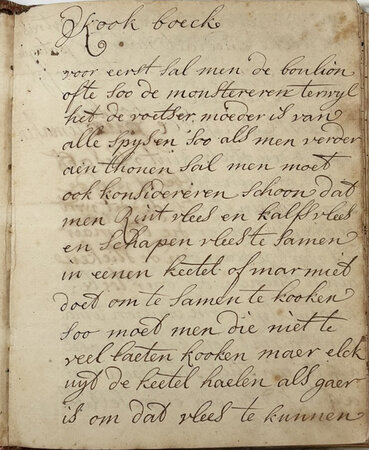 Kook boeck
voor eerst sal men de boulion
ofte soo de monstereren terwyl
het de voetser moeder is van
alle spysen soo als men verder
aenthonen sal men moet
ook konsidereren schoon dat
men Rint vlees en kalfs vlees
en schapen vlees te samen
in eenen keetel of marmiet
doet om te samen te kooken
soo moet men die niet te
veel laeten kooken maer elck
uyt de keetel haelen als gaer
is om dat vlees te kunnen